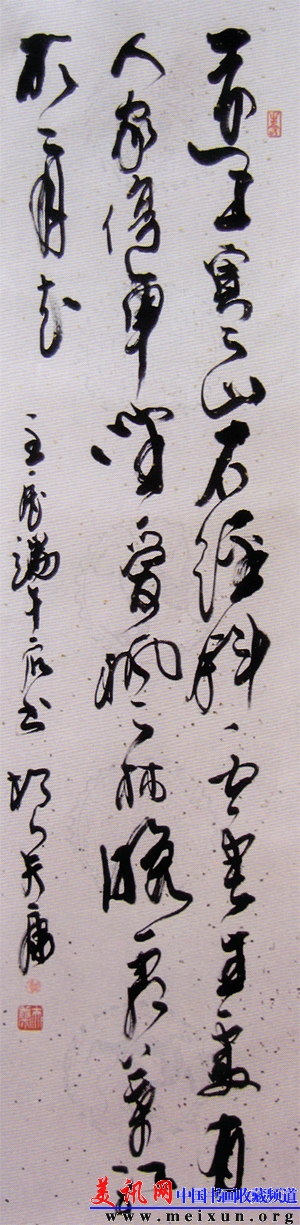 远上寒山石径斜白云生处有
人家停車坐爱枫林晚霜葉红
於二月花
壬辰端午
美讯网 中国书画收藏频道
www.meixun.org